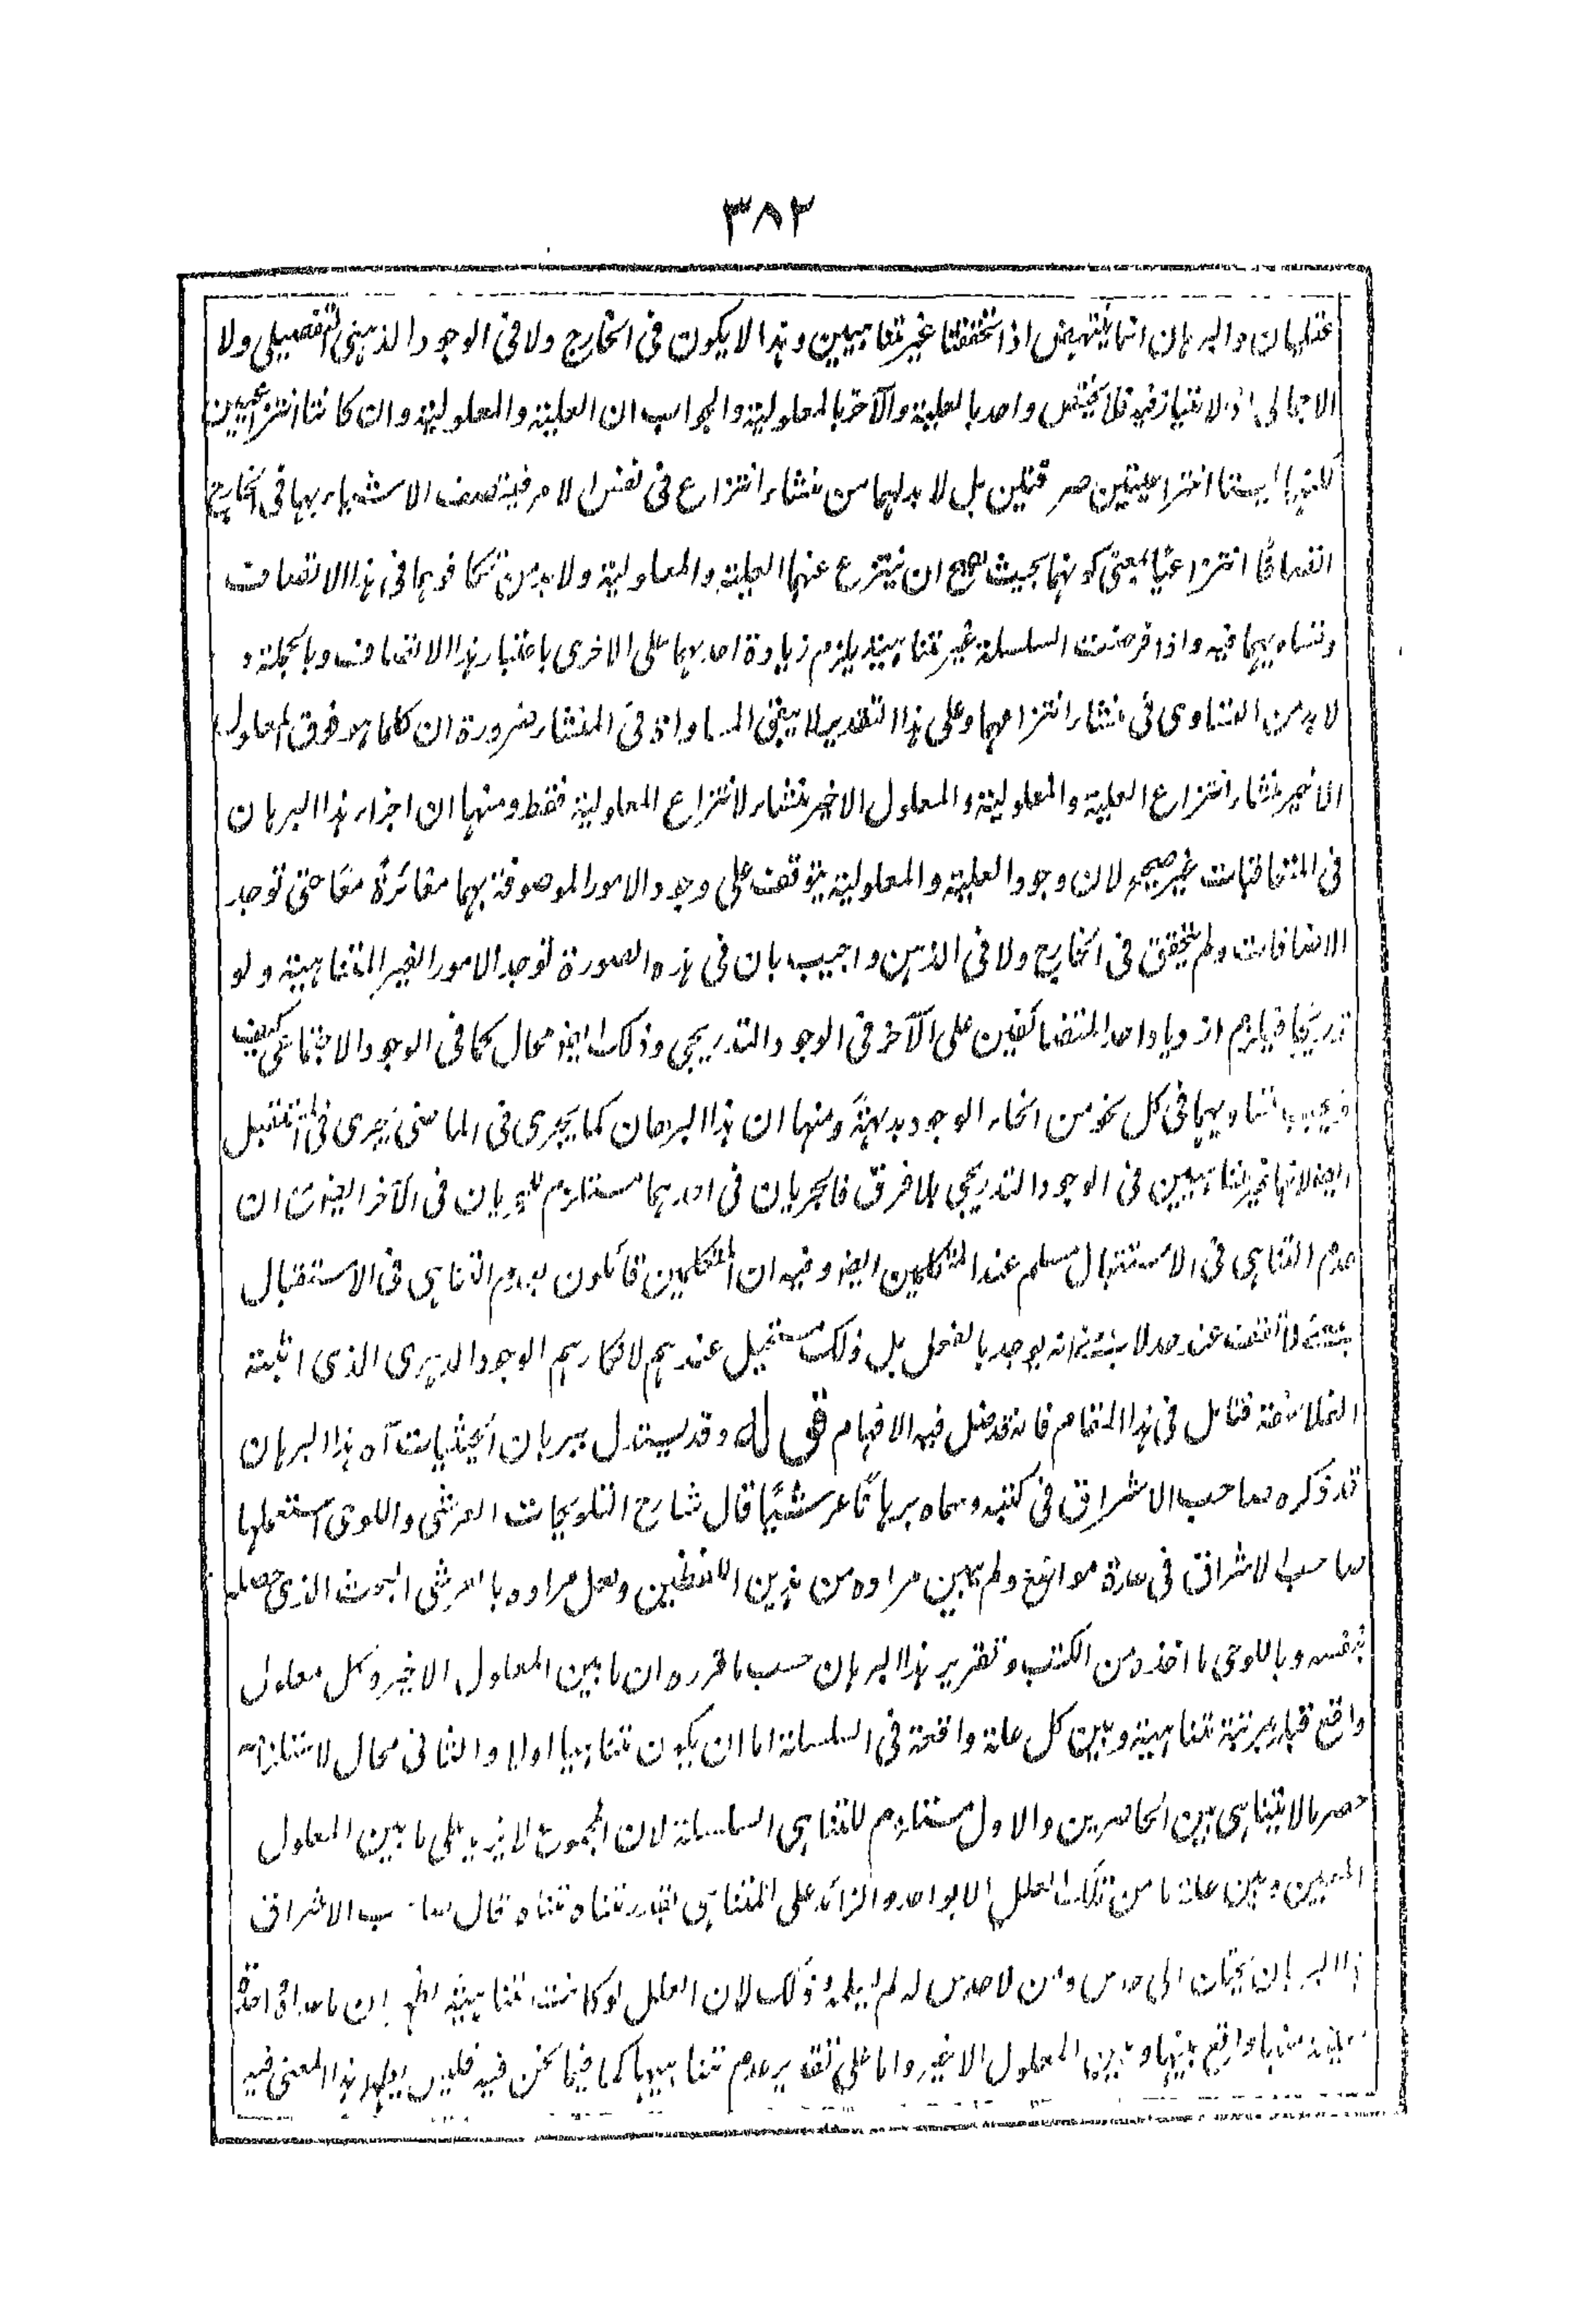 ٣٨٢
عقليهان والبرهان انما ينتهض اذا تحققتا غير متناهيين وهذا لا يكون فى الخارج ولا فى الوجود الذهنى التفصيلى ولا
الاجمالى اذ لا امتياز فيه فلا يختص واحد بالعلية والآخر بالمعلولية والجواب ان العلية والمعلولية وان كانتا انتزاعيين
لكنهما ليستا اختراعيتين صرفتين بل لا بد لهما من منشاء انتزاع فى نفس الامر فيتصف الاشياء بهما فى الخارج
اتصافًا انتزاعيًا بمعنى كونهما بحيث يصح ان ينتزع عنهما العلية والمعلولية ولا بد من تكافوهما فى هذا الاتصاف
وتساويهما فيه واذا فرضت السلسلة غير متناهية يلزم زيادة احدهما على الاخرى باعتبار هذا الاتصاف وبالجملة و
لا بد من التساوى فى منشاء انتزاعهما وعلى هذا التقدير لا يبقى المساواة فى المنشاء ضرورة ان كلما هو فوق المعلول
الاخير منشاء انتزاع العلية والمعلولية والمعلول الاخير منشاء لانتزاع المعلولية فقط ومنها ان اجراء هذا البرهان
فى المتعاقبات غير صحيح لان وجود العلية والمعلولية يتوقف على وجود الامور الموصوفة بهما مقائرةً معًا حتى توجد
الاضافات ولم يتحقق فى الخارج ولا فى الذهن واجيب بان فى هذه الصورة توجد الامور الغير المتناهية ولو
تدريجًا فيلزم ازدياد احد المتضائفين على الآخر فى الوجود التدريجى وذلك ايضً محال كما فى الوجود الاجتماعى كيف
فيجب تساويهما فى كل نحو من انحاء الوجود بديهةً ومنها ان هذا البرهان كما يجرى فى الماضى يجرى فى المستقبل
ايضً لانهما غير متناهيين فى الوجود التدريجى بلا فرق فالجريان فى احدهما مستلزم للجريان فى الآخر ايضً مع ان
عدم التناهى فى الاستقبال مسلم عند المتكلمين ايضً وفيه ان المتكلمين قائلون بعدم التناهى فى الاستقبال
بمعنى لا تقف عند حد لا بمعنى انه يوجد بالفعل بل ذلك مستحيل عندهم لانكارهم الوجود الدهرى الذى اثبته
الفلاسفة فتامل فى هذا المقام فانه قد ضل فيه الافهام قوله وقد يستدل ببرهان الحيثيات آه هذا البرهان
قد ذكره صاحب الاشراق فى كتبه وسماه برهانًا عرشيًا قال شارح التلويحات العرشى واللوحى استعملها
صاحب الاشراق فى عدة مواضع ولم يبين مراده من هذين اللفظين ولعل مراده بالعرشى البحث الذى حصله
بنفسه وباللوحى ما اخذه من الكتب وتقرير هذا البرهان حسب ما قرره ان ما بين المعلول الاخير وكل معلول
واقع قبله بمرتبة متناهية وبين كل علة واقعة فى السلسلة اما ان يكون متناهيا اولا والثانى محال لاستلزامه
حصر ما لا يتناهى بين الحاصرين والاول مستلزم لتناهى السلسلة لان المجموع لا يزيد على ما بين المعلول
المعين وبين علة ما من تلك العلل الا بواحد والزائد على المتناهى بقدر متناه متناه قال صاحب الاشراق
هذا البرهان يحتاج الى حدس ومن لا حدس له لم يعلمه وذلك لان العلل لو كانت متناهية لظهر ان ما عدا
منها واقع بينها وبين المعلول الاخير واما على تقدير عدم تناهيها كما فيما نحن فيه فليس يظهر هذا المعنى فيه